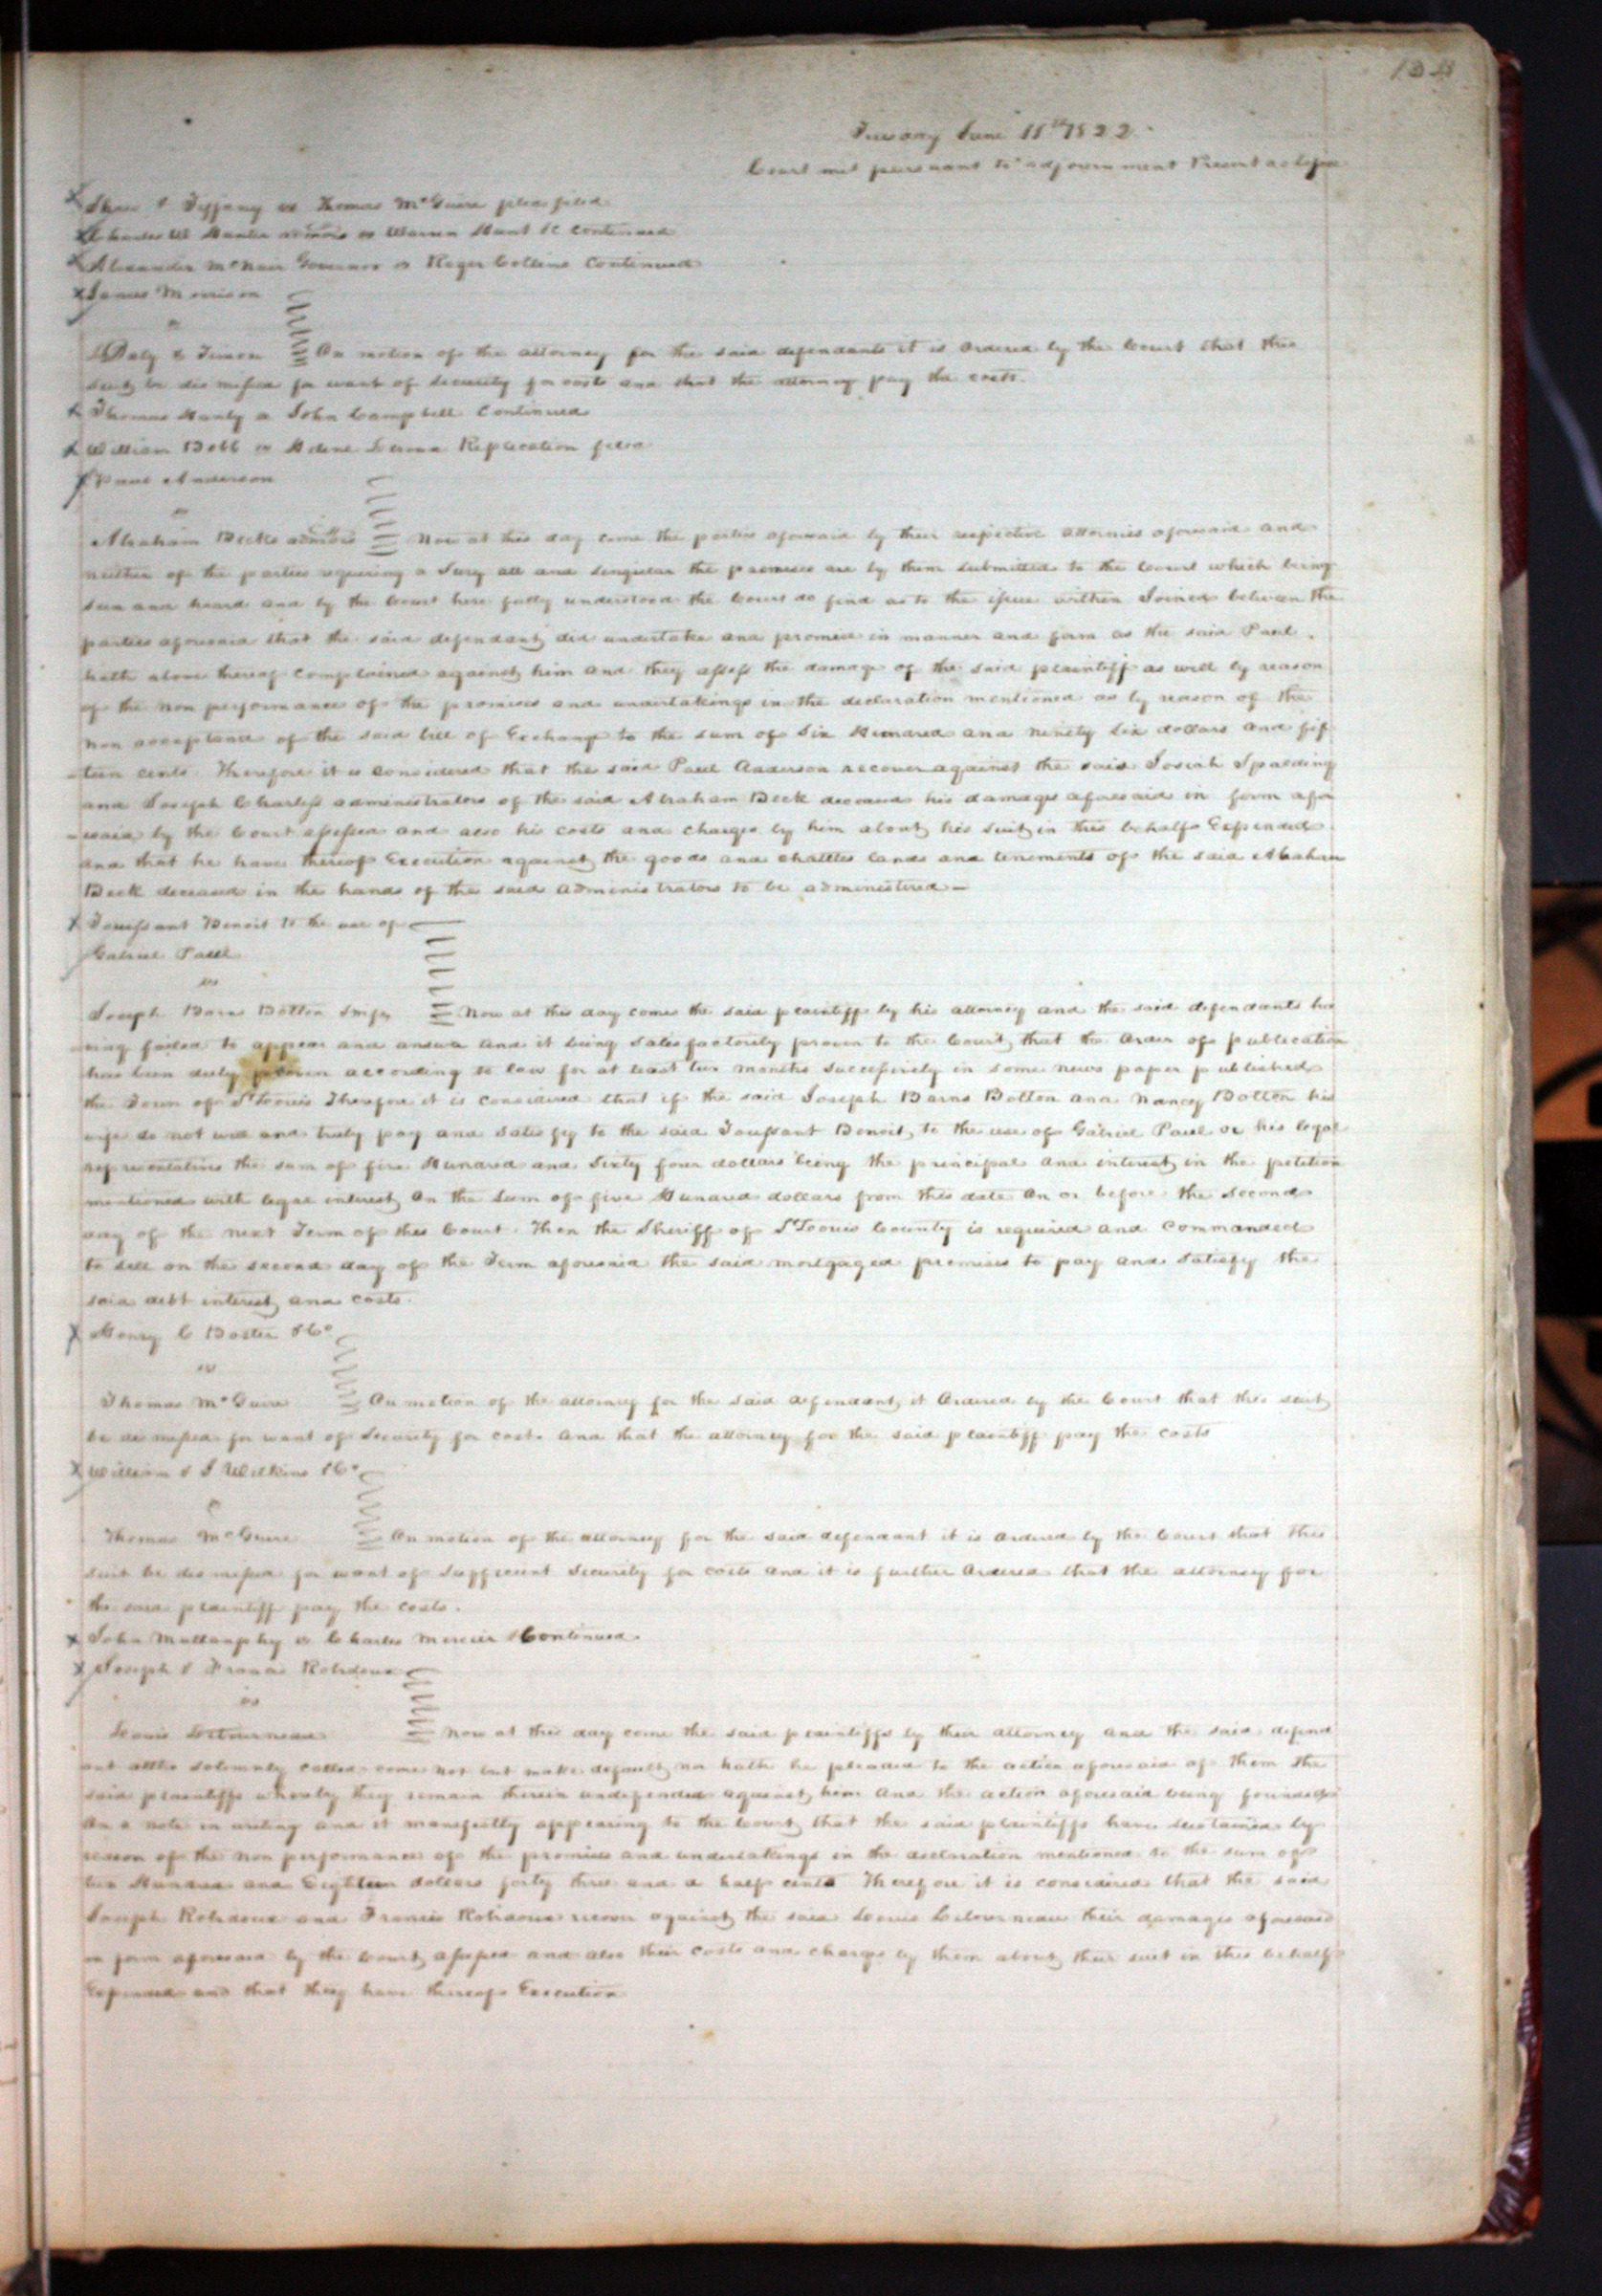 134
Tuesday June 11th 1822
Court met pursuant to adjournment Present as before
Shaw & Tiffany vs Thomas McGuire plea filed
Charles W Hunter vs Warren Hunt &c continued
Alexander McNair Governor vs Roger Collins Continued
James Morrison
vs
Daly & Simon On motion of the attorney for the said defendants it is Ordered by the Court that this
suit be dismissed for want of security for costs and that the attorney pay the costs.
Thomas Hanly vs John Campbell Continued
William Bobb vs Replication filed
Paul Anderson
vs
Abraham Becks admors Now at this day come the parties aforesaid by their respective attornies aforesaid and
neither of the parties requiring a Jury all and singular the premises are by them submitted to the Court which being
seen and heard and by the Court here fully understood the Court do find as to the issue within Joined between the
parties aforesaid that the said defendant did undertake and promise in manner and form as the said Paul
hath above thereof complained against him and they assess the damage of the said plaintiff as well by reason
of the non performance of the promises and undertakings in the declaration mentioned as by reason of the
non acceptance of the said bill of Exchange to the sum of Six Hundred and ninety six dollars and fif
teen cents Therefore it is considered that the said Paul Anderson recover against the said Josiah Spalding
and Joseph Charless administrators of the said Abraham Beck deceased his damages aforesaid in form afor
esaid by the Court assessed and also his costs and charges by him about his suit in this behalf Expended
and that he have thereof Execution against the goods and chattles lands and tenements of the said Abraham
Beck deceased in the hands of the said administrators to be administered
Toussant Benoit to the use of
Gabriel Paul
vs
Joseph Barns Botton Now at this day comes the said plaintiff by his attorney and the said defendants hav
ving failed to appear and answer and it being satisfactorily proven to the Court that the Order of publication
has been duly according to law for at least two months successively in some news paper published
the Town of St Louis Therefore it is considered that if the said Joseph Barns Botton and Nancy Botton his
wife do not well and truly pay and satisfy to the said Toussant Benoit to the use of Gabriel Paul or his legal
representatives the sum of five Hundred and Sixty four dollars being the principal and interest in the petition
mentioned with legal interest on the sum of five Hundred dollars from this date on or before the Second
day of the next Term of this Court Then the Sheriff of St Louis County is required and Commanded
to sell on the second day of the Term aforesaid the said mortgaged premises to pay and satisfy the
said debt interest and costs.
Henry C &Co
vs
Thomas McGuire On motion of the attorney for the said defendant it Ordered by the Court that this suit
be dismissed for want of Security for costs and that the attorney for the said plaintiff pay the costs
William & J Wilkins &Co
vs
Thomas McGuire On motion of the attorney for the said defendant it is ordered by the Court that this
suit be dismissed for want of sufficient Security for costs and it is further Ordered that the attorney for
the said plaintiff pay the costs.
John Mullanphy vs Charles Mercier Continued.
Joseph & Francis Robidoux
vs
Louis Letourneau Now at this day come the said plaintiffs by their attorney and the said defend
ant altho solemnly called come not but make default nor hath he pleaded to the action aforesaid of them the
said plaintiffs whereby they remain therein undefended against him and the action aforesaid being founded
on a note in writing and it manifestly appearing to the Court that the said plaintiffs have sustained by
reason of the non performance of the promises and undertakings in the declaration mentioned to the sum of
Hundred and Eighteen dollars forty three and a half cents Therefore it is considered that the said
Joseph Robidoux and Francis Robidoux recover against the said Louis Letourneau their damages aforesaid
in form aforesaid by the Court assessed and also their costs and charges by them about their suit in this behalf
Expended and that they have thereof Execution